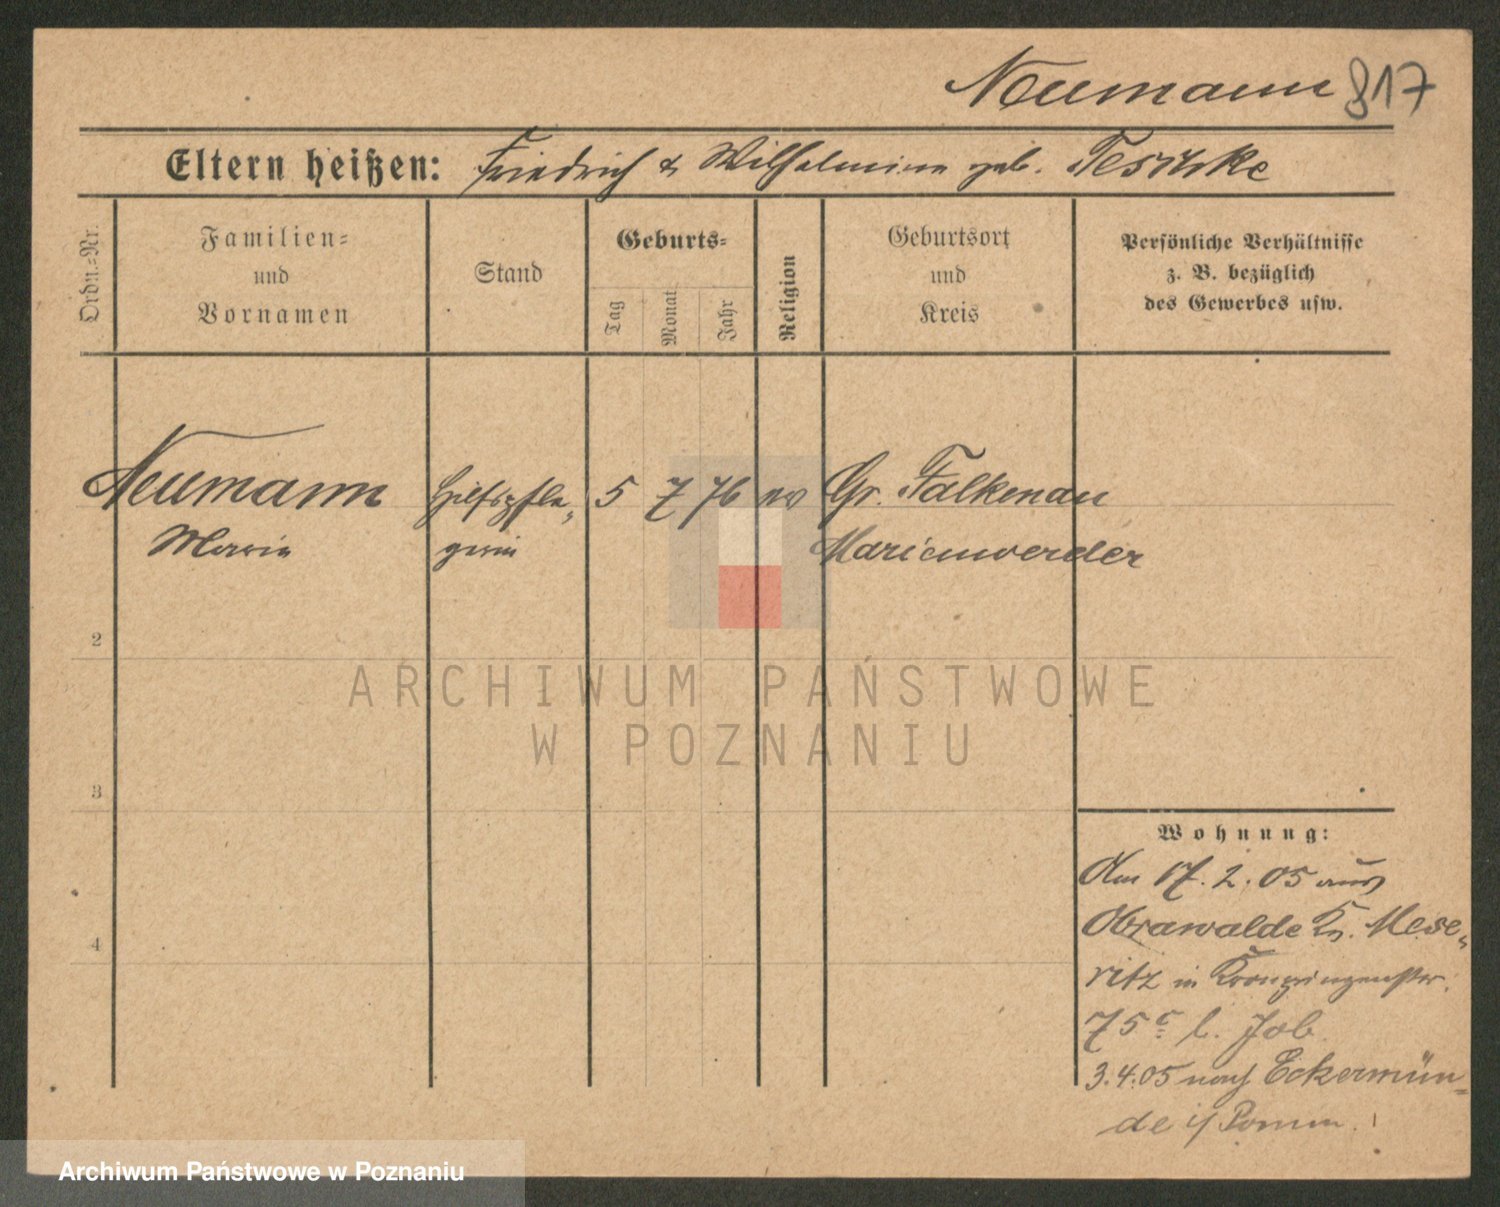 Neumann 817
Eltern heißen: Friedrich & Wilhelmine geb.
Ordn.=Nr.
Familien=
und
Vornamen
Stand
Geburts=
Tag
Monat
Jahr
Religion
Geburtsort
und
Kreis
Persönliche Verhältnisse
z. B. bezüglich
des Gewerbes usw.
Neumann Hilfspfle= 5 7 76 ev Gr. Falkenau
Marie gerin Marienwerder
2
ARCHIWUM PAŃSTWOWE
W POZNANIU
3
Wohnung:
Am 17.2.05 aus
4 Obrawalde Kr. Mese=
ritz in Kronprinzenstr.
75c b. Job
3.4.05 nach Eckermün=
de i/ Pomm.
Archiwum Państwowe w Poznaniu